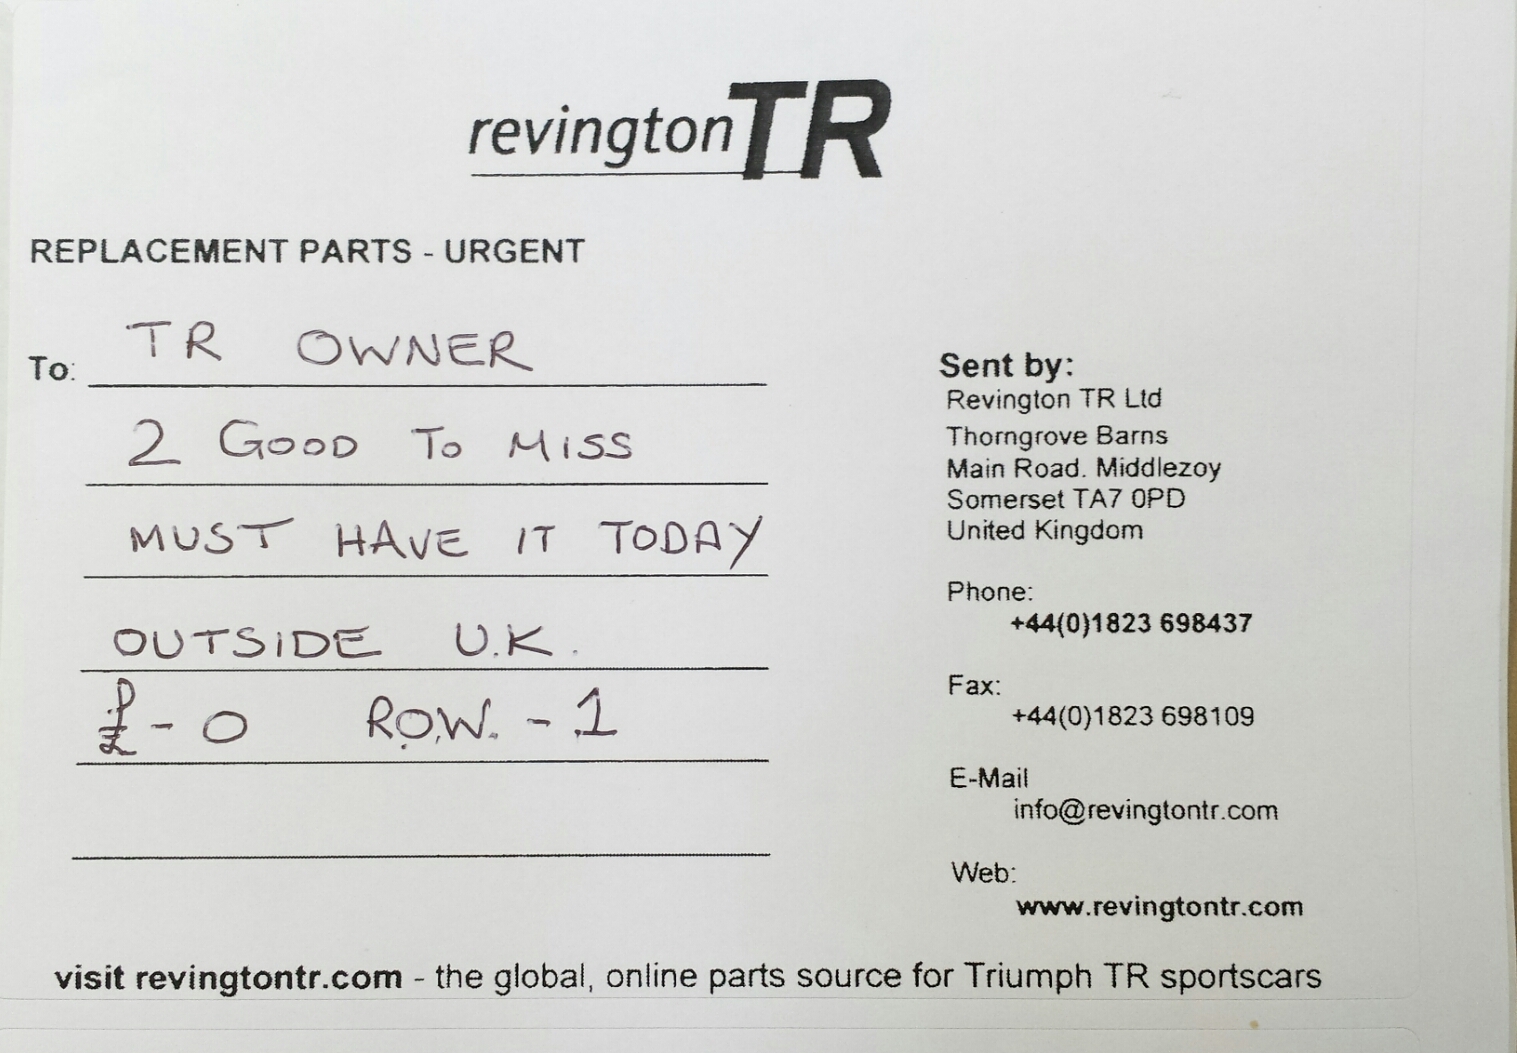 revingtonTR
REPLACEMENT PARTS - URGENT
To: TR OWNER
2 GOOD TO MISS
MUST HAVE IT TODAY
OUTSIDE U.K.
£ - 0 R.O.W. - 1
Sent by:
Revington TR Ltd
Thorngrove Barns
Main Road. Middlezoy
Somerset TA7 0PD
United Kingdom
Phone:
+44(0)1823 698437
Fax:
+44(0)1823 698109
E-Mail
info@revingtontr.com
Web:
www.revingtontr.com
visit revingtontr.com - the global, online parts source for Triumph TR sportscars